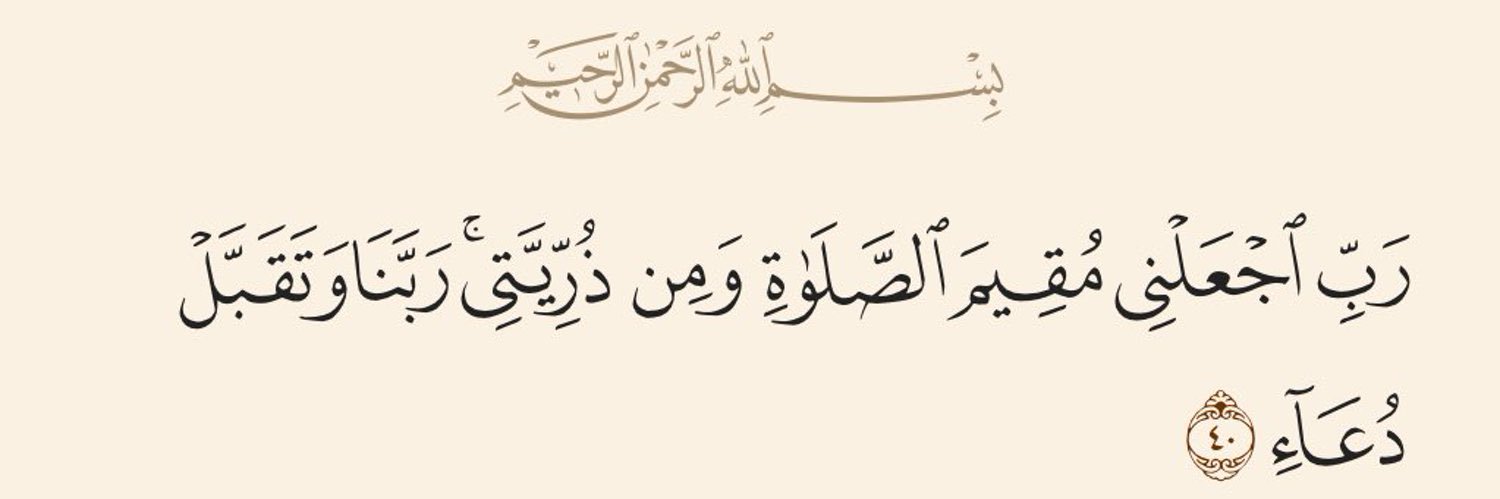 بِسْمِ ٱللَّهِ ٱلرَّحْمَٰنِ ٱلرَّحِيمِ
رَبِّ ٱجْعَلْنِى مُقِيمَ ٱلصَّلَوٰةِ وَمِن ذُرِّيَّتِى ۚ رَبَّنَا وَتَقَبَّلْ
دُعَآءِ ٤٠